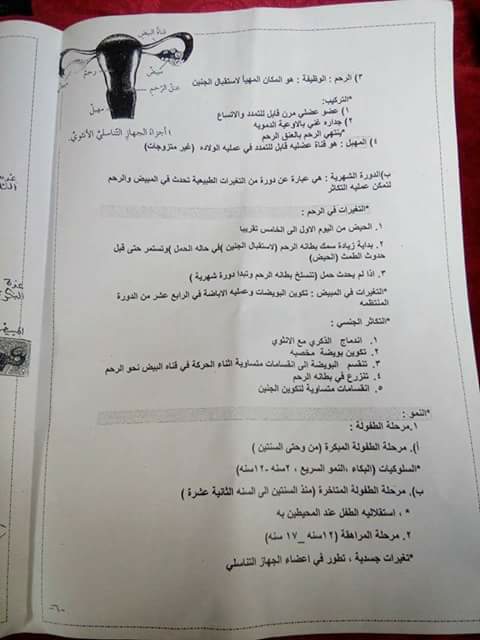 قناة البيض
مبيض
رحم
عنق الرحم
مهبل
١ أجزاء الجهاز التناسلي الأنثوي.
٣) الرحم : الوظيفة : هو المكان المهيأ لاستقبال الجنين
*التركيب:
١) عضو عضلي مرن قابل للتمدد والاتساع
٢) جداره غني بالاوعية الدمويه
*ينتهي الرحم بالعنق الرحم
٤) المهبل : هو قناة عضليه قابل للتمدد في عمليه الولاده (غير متزوجات)
ب)الدورة الشهرية : هي عبارة عن دورة من التغيرات الطبيعية تحدث في المبيض والرحم
لتمكن عمليه التكاثر
*التغيرات في الرحم :
١. الحيض من اليوم الاول الى الخامس تقريبا
٢. بداية زيادة سمك بطانه الرحم (لاستقبال الجنين )في حاله الحمل )وتستمر حتى قبل
حدوث الطمث (الحيض)
٣. اذا لم يحدث حمل (تنسلخ بطانه الرحم وتبدا دورة شهرية )
*التغيرات في المبيض : تكوين البويضات وعمليه الاباضة في الرابع عشر من الدورة
المنتظمه
*التكاثر الجنسي :
١. اندماج الذكري مع الانثوي
٢. تكوين بويضة مخصبه
٣. تنقسم البويضة الى انقسامات متساوية اثناء الحركة في قناه البيض نحو الرحم
٤. تنزرع في بطانه الرحم
٥. انقسامات متساوية لتكوين الجنين
*النمو :
١.مرحلة الطفولة :
أ). مرحلة الطفولة المبكرة (من وحتى السنتين )
*السلوكيات (البكاء ،النمو السريع ، ٢سنه -١٢سنه)
ب). مرحلة الطفولة المتاخرة (منذ السنتين الى السنه الثانية عشرة )
* ، استقلاليه الطفل عند المحيطين به
٢. مرحلة المراهقة (١٢سنه _١٧ سنه)
*تغيرات جسدية ، تطور في اعضاء الجهاز التناسلي
-٦-